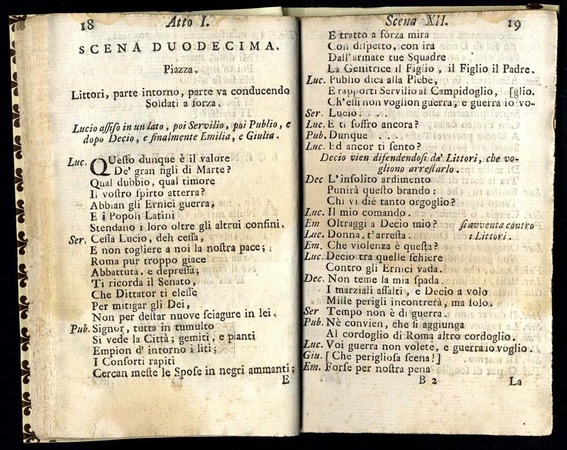 18 Atto I.
SCENA DUODECIMA.
Piazza.
Littori, parte intorno, parte va conducendo
Soldati a forza.
Lucio assiso in un lato, poi Servilio, poi Publio, e
dopo Decio, e finalmente Emilia, e Giulia.
Luc. QUesto dunque è il valore
De' gran figli di Marte?
Qual dubbio, qual timore
Il vostro spirto atterra?
Abbian gli Ernici guerra,
E i Popoli Latini
Stendano i loro oltre gli altrui confini.
Ser. Cessa Lucio, deh cessa,
E non togliere a noi la nostra pace;
Roma pur troppo giace
Abbattuta, e depressa;
Ti ricorda il Senato,
Che Dittator ti elesse
Per mitigar gli Dei,
Non per destar nuove sciagure in lei.
Pub. Signor, tutta in tumulto
Si vede la Città; gemiti, e pianti
Empion d' intorno i liti;
I Consorti rapiti
Cercan meste le Spose in negri ammanti;
E
Scena XII. 19
E tratto a forza mira
Con dispetto, con ira
Dall'armate tue Squadre
La Genitrice il Figlio, il Figlio il Padre.
Luc. Publio dica alla Plebe,
E rapporti Servilio al Campidoglio, [glio.
Ch'essi non voglion guerra, e guerra io vo-
Ser. Lucio. . . .
Luc. E ti soffro ancora?
Pub. Dunque . . . .
Luc. Ed ancor ti sento?
Decio vien difendendosi da' Littori, che vo-
gliono arrestarlo.
Dec L'insolito ardimento
Punirà questo brando:
Chi vi diè tanto orgoglio?
Luc. Il mio comando.
Em Oltraggi a Decio mio? si avventa contro
Luc. Donna, t'arresta. i Littori.
Em. Che violenza è questa?
Luc. Decio tra quelle schiere
Contro gli Ernici vada.
Dec. Non teme la mia spada.
I marziali assalti, e Decio a volo
Mille perigli incontrerà, ma solo.
Ser Tempo non è di guerra.
Pub. Nè convien, che si aggiunga
Al cordoglio di Roma altro cordoglio.
Luc. Voi guerra non volete, e guerra io voglio.
Giu. [Che perigliosa scena!]
Em. Forse per nostra pena
B 2 La